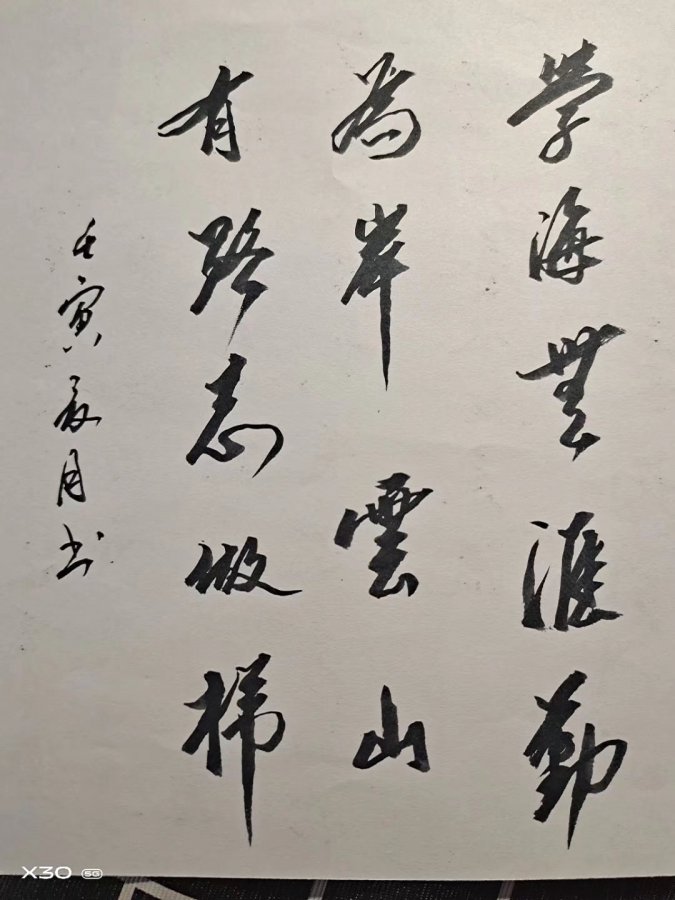 學海無涯勤
為岸雲山
有路志做梯
壬寅夏月书
X30 5G